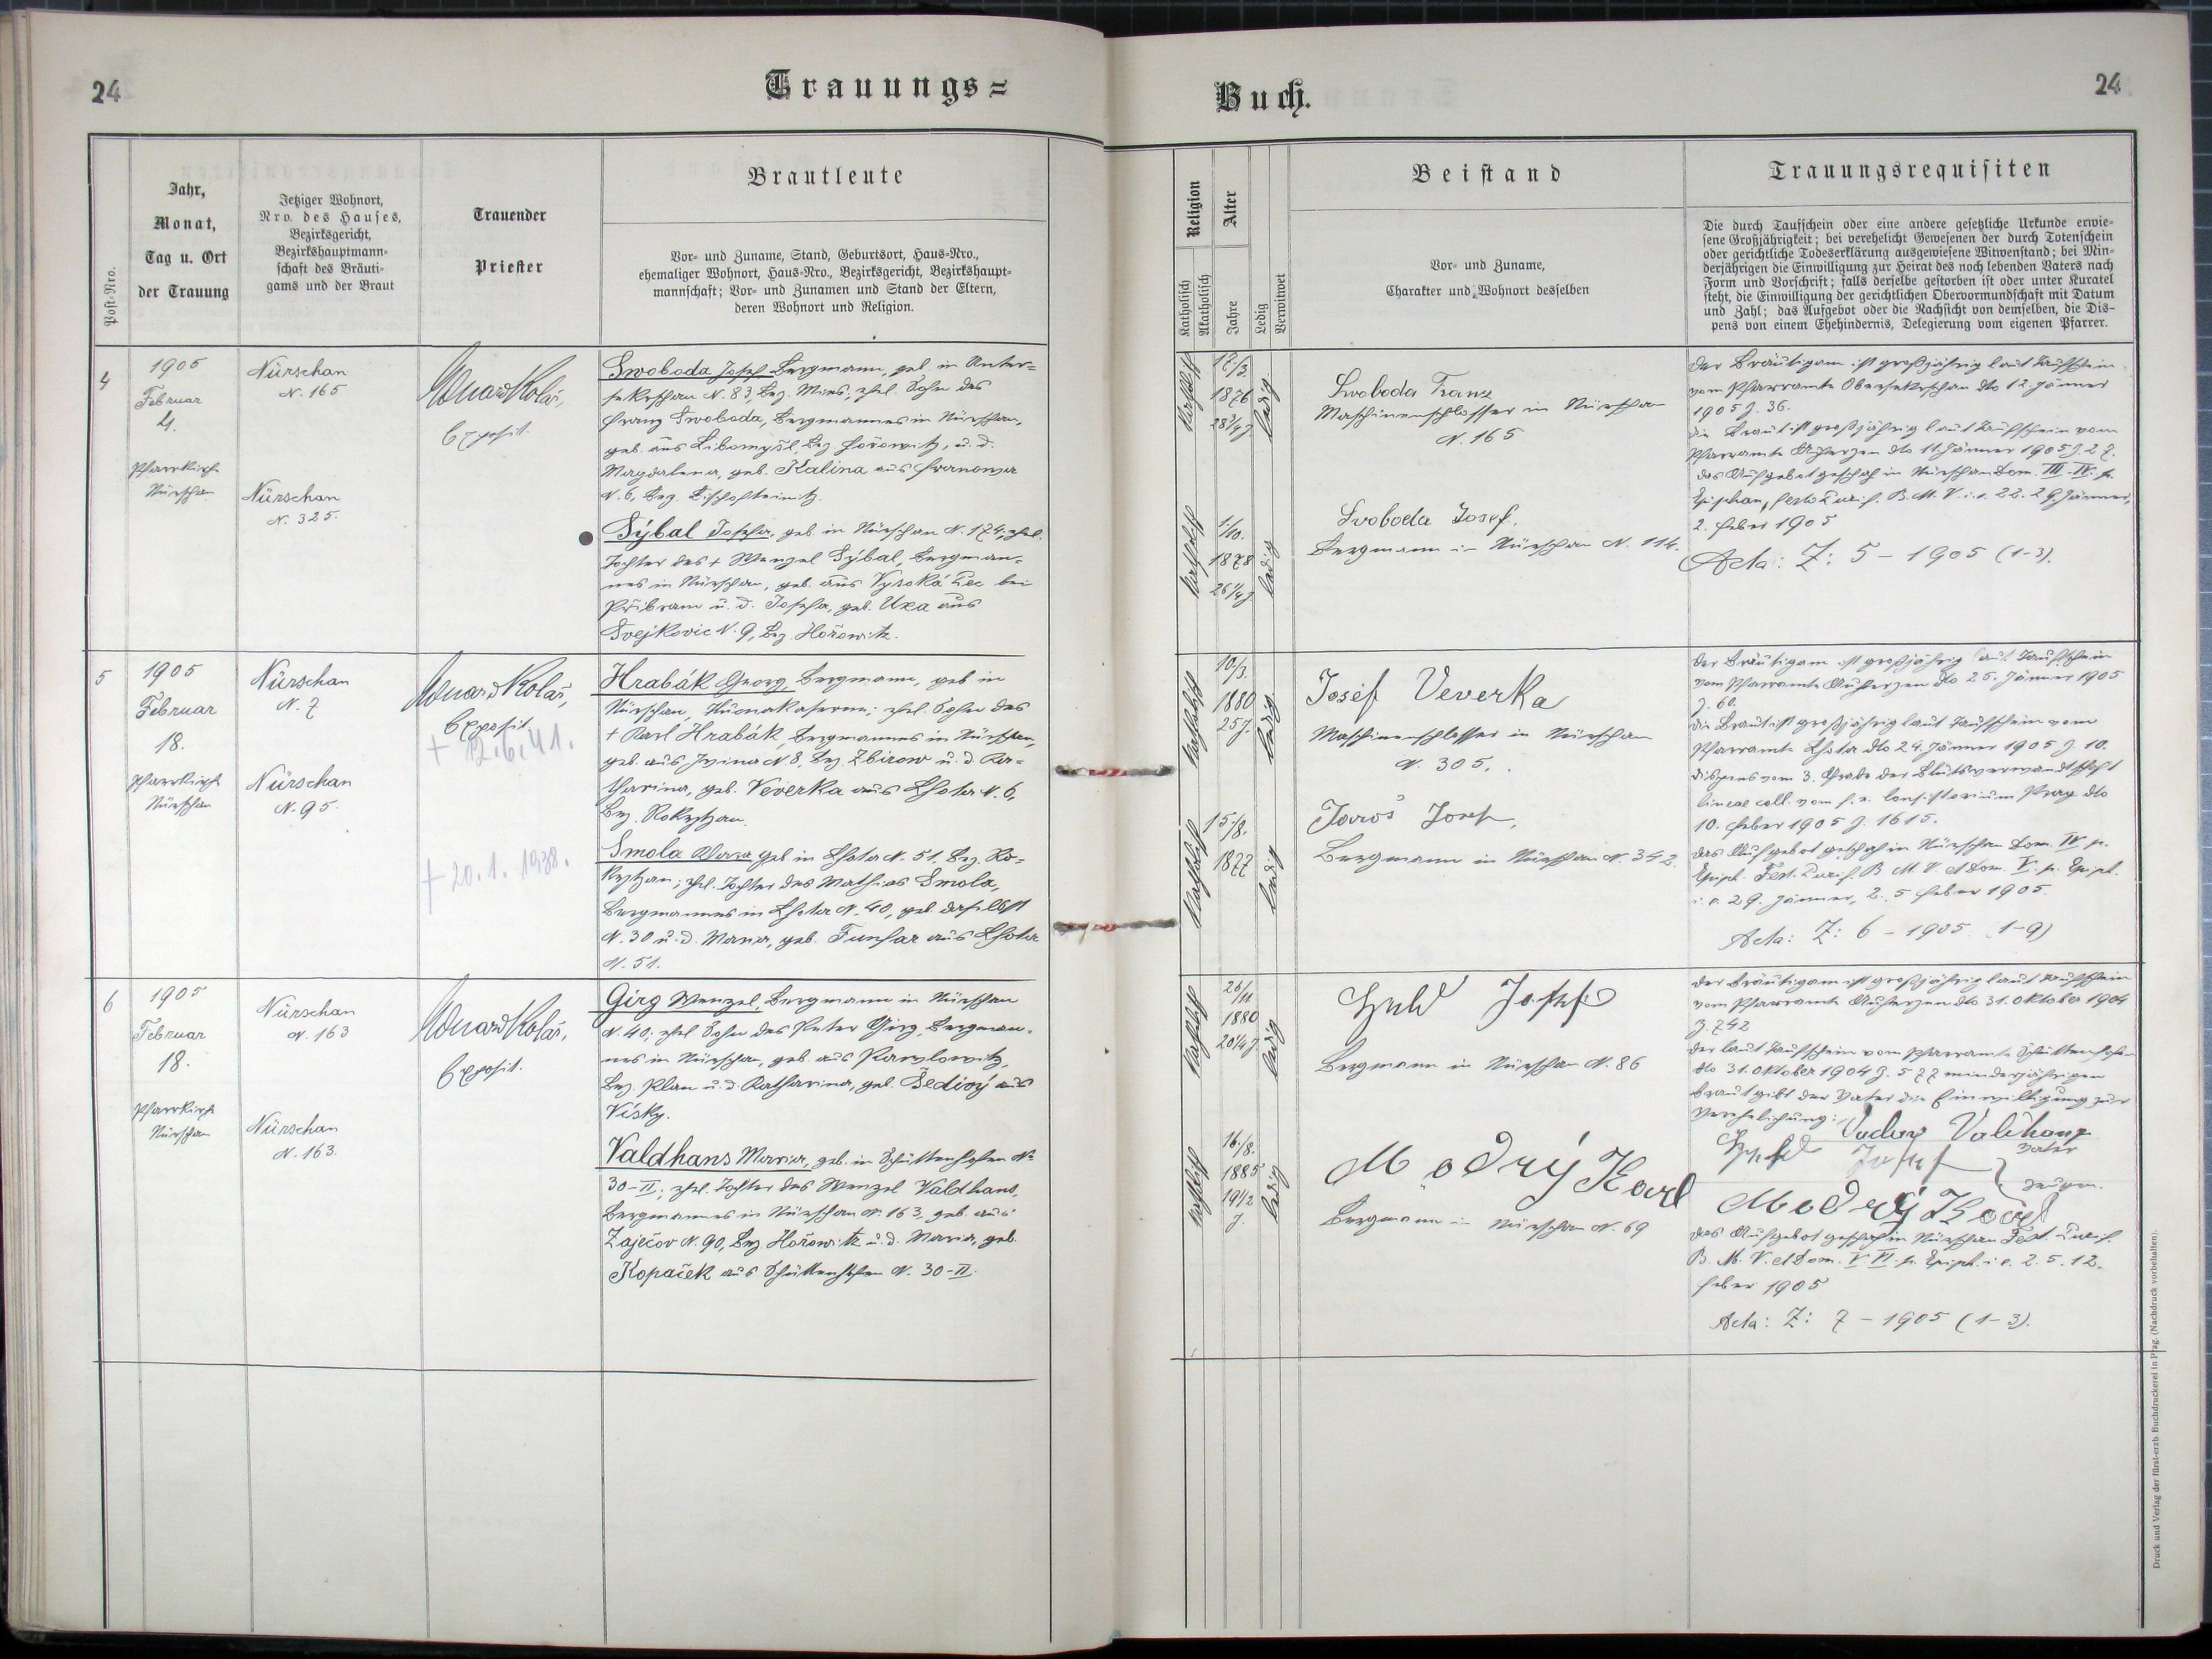 24
Trauungs=
Buch.
24
Post-Nro.
Jahr,
Monat,
Tag u. Ort
der Trauung
Jetziger Wohnort,
Nro. des Hauses,
Bezirksgericht,
Bezirkshauptmann-
schaft des Bräuti-
gams und der Braut
Trauender
Priester
Brautleute
Vor- und Zuname, Stand, Geburtsort, Haus-Nro.,
ehemaliger Wohnort, Haus-Nro., Bezirksgericht, Bezirkshaupt-
mannschaft; Vor- und Zunamen und Stand der Eltern,
deren Wohnort und Religion.
Religion
Katholisch
Akatholisch
Alter
Jahre
Ledig
Verwitwet
Beistand
Vor- und Zuname,
Charakter und Wohnort desselben
Trauungsrequisiten
Die durch Taufschein oder eine andere gesetzliche Urkunde erwie-
sene Großjährigkeit; bei verehelicht Gewesenen der durch Totenschein
oder gerichtliche Todeserklärung ausgewiesene Witwenstand; bei Min-
derjährigen die Einwilligung zur Heirat des noch lebenden Vaters nach
Form und Vorschrift; falls derselbe gestorben ist oder unter Kuratel
steht, die Einwilligung der gerichtlichen Obervormundschaft mit Datum
und Zahl; das Aufgebot oder die Nachsicht von demselben, die Dis-
pens von einem Ehehindernis, Delegierung vom eigenen Pfarrer.
4
1905
Februar
4.
Pfarrkirche
Nürschan
Nürschan
N. 165
Nürschan
N. 325.
Eduard Kolář,
Exposit.
Swoboda Josef Bergmann, geb. in Unter-
sekerschan N. 83, Bez. Mies, ehel. Sohn des
Franz Swoboda, Bergmannes in Nürschan,
geb. aus Libomyšl, Bez. Hořowitz, u. d.
Magdalena, geb. Kalina aus
N. 6, Bez. Bischofteinitz.
Sýbal Josefa, geb. in Nürschan N. 174, ehel.
Tochter des + Wenzel Sýbal, Bergman-
nes in Nürschan, geb. aus Vysoká Pec bei
Přibram u. d. Josefa, geb. Uxa aus
Svejkovic N. 9, Bez. Hořowitz.
katholisch
12/3.
1876
28 3/4 J
ledig
katholisch
1/10.
1878
26 1/4 J
ledig
Svoboda Franz
Maschinenschlosser in Nürschan
N. 165
Svoboda Josef,
Bergmann in Nürschan N. 114.
Der Bräutigam ist großjährig laut Taufschein
vom Pfarramte Obersekerschan dto 12. Jänner
1905 Z. 36.
Die Braut ist großjährig laut Taufschein vom
Pfarramte Auherzen dto 11. Jänner 1905 Z. 27.
Das Aufgebot geschah in Nürschan Dom. III. IV. p.
Epiphan, festo Purif. B. M. V. i. e. 22. 29. Jänner,
2. Feber 1905
Acta: Z: 5 - 1905 (1-3).
5
1905
Februar
18.
Pfarrkirche
Nürschan
Nürschan
N. 7
Nürschan
N. 95.
Eduard Kolář,
Exposit.
+ 12.6.41.
+ 20.1.1938.
Hrabák Georg, Bergmann, geb. in
Nürschan, ehel. Sohn des
+ Karl Hrabák, Bergmannes in Nürschan,
geb. aus Jvina N. 8, Bez. Zbirow u. d. Ka-
tharina, geb. Veverka aus Lhota N. 6,
Bez. Rokytzan.
Smola Maria, geb. in Lhota N. 51, Bez. Ro-
kytzan; ehel. Tochter des Mathias Smola,
Bergmannes in Lhota N. 40, geb. daselbst
N. 30 u. d. Maria, geb. Funfar aus Lhota
N. 51.
katholisch
10/3.
1880
25 J.
ledig
katholisch
15/8.
1877
ledig
Josef Veverka
Maschinenschlosser in Nürschan
N. 305.
Jaroš Josef,
Bergmann in Nürschan N. 342.
Der Bräutigam ist großjährig laut Taufschein
vom Pfarramte Auherzen dto 25. Jänner 1905
Z. 60.
Die Braut ist großjährig laut Taufschein vom
Pfarramte Lhota dto 24. Jänner 1905 Z. 10.
Dispens vom 3. Grade der Blutsverwandtschaft
lineae coll. vom f. e. Consistorium Prag dto
10. Feber 1905 Z. 1615.
Das Aufgebot geschah in Nürschan Dom. IV p.
Epiph. Fest. Purif. B. M. V. et Dom. V. p. Epiph.
i. e. 29. Jänner, 2. 5 Feber 1905.
Acta: Z: 6 - 1905 (1-9)
6
1905
Februar
18.
Pfarrkirche
Nürschan
Nürschan
N. 163
Nürschan
N. 163.
Eduard Kolář,
Exposit.
Girg Wenzel, Bergmann in Nürschan
N. 40; ehel. Sohn des Peter Girg, Bergman-
nes in Nürschan, geb. aus Pawlowitz,
Bez. Plan u. d. Katharina, geb. Šedivý aus
Vísky.
Valdhans Maria, geb. in Schüttenhofen N.
30-II; ehel. Tochter des Wenzel Valdhans,
Bergmannes in Nürschan N. 163, geb. aus
Zaječov N. 90, Bez. Hořowitz u. d. Maria, geb.
Kopaček aus Schüttenhofen N. 30-II.
katholisch
26/11
1880
ledig
katholisch
16./8.
1885
19 1/2
J.
ledig
Josef
Bergmann in Nürschan N. 86
Modrý Karl
Bergmann in Nürschan N. 69
Der Bräutigam ist großjährig laut Taufschein
vom Pfarramte Auherzen dto 31. Oktober 1904
Z. 742
Der laut Taufschein vom Pfarramte Schüttenhofen
dto 31. Oktober 1904 Z. 577 minderjährigen
Braut gibt der Vater die Einwilligung zur
Verehelichung:
Vater
Josef
Zeugen.
Modrý Karl
Das Aufgebot geschah in Nürschan Fest. Purif.
B. M. V. et Dom. V. VI. p. Epiph. i. e. 2. 5. 12.
Feber 1905
Acta: Z: 7 - 1905 (1-3).
Druck und Verlag der fürst-erzb. Buchdruckerei in Prag. (Nachdruck vorbehalten).